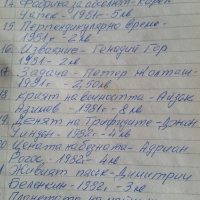 14. Фабрика за абсолют - Карел
Чапек - 1981г. - 5лв
15. Перпендикулярно време -
1981г - 2лв
16. Изваяние - Генадий Гор
1981 - 2лв
17. Задача - Петер Жолташ
1981г. 2,50лв
18. Краят на вечността - Айзък
Азимов - 1981г. 8лв
19. Денят на трифидите - Джон
Уиндъм - 1982г - 4лв
20 Цената на бедната - Адриан
Рогоз, - 1982 - 4лв
Живият пясък - Димитрий
Беленкин - 1982г. - 3лв